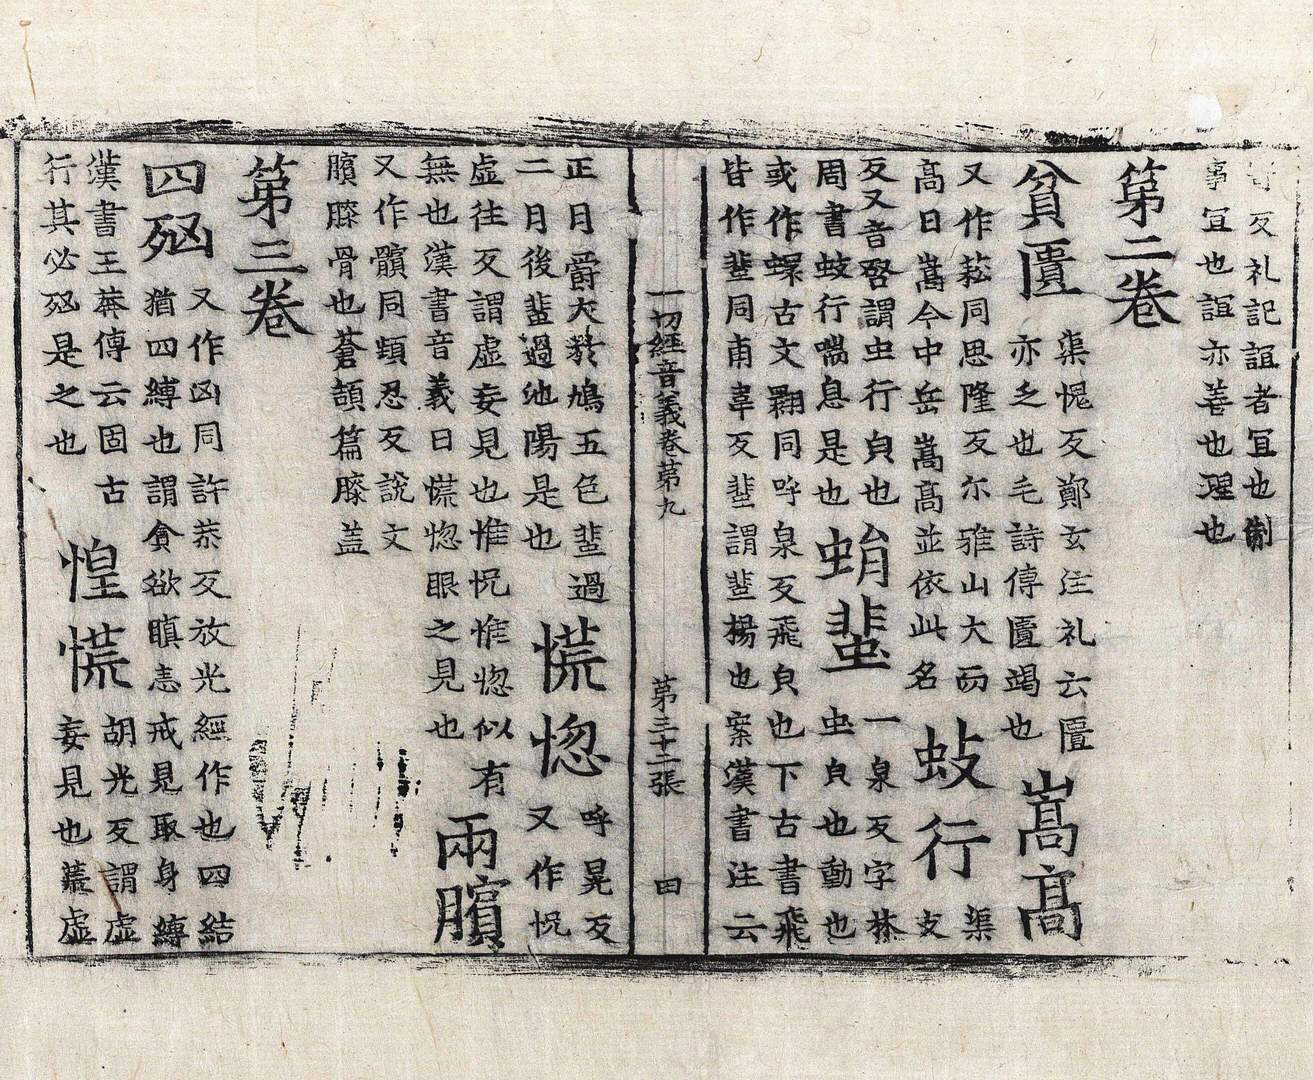 寄反礼記誼者冝也制
事冝也誼亦善也理也
第二卷
貧匱
渠愧反鄭玄注礼云匱
亦乏也毛詩傳匱竭也
嵩高
又作菘同思隆反尒雅山大而
高曰嵩今中岳嵩高並依此名
蚑行
渠
支
反又音啓謂虫行皃也
周書蚑行喘息是也
蛸蜚
一泉反字林
虫皃也動也
或作蠉古文翾同呼泉反飛皃也下古書飛
皆作蜚同甫韋反蜚謂蜚揚也案漢書注云
一切經音義卷第九 第三十二張 田
正月爵大於鳩五色蜚過
二月後蜚過池陽是也
慌惚
呼晃反
又作怳
虛往反謂虛妄見也惟怳惟惚似有
無也漢書音義曰慌惚眼之見也
兩臏
又作髕同頻忍反說文
臏膝骨也蒼頡篇膝盖
第三卷
四㓙
又作凶同許恭反放光經作也四結
猶四縛也謂貪欲瞋恚戒見取身縛
漢書王莽傳云固古
行其必㓙是之也
惶慌
胡光反謂虛
妄見也虛